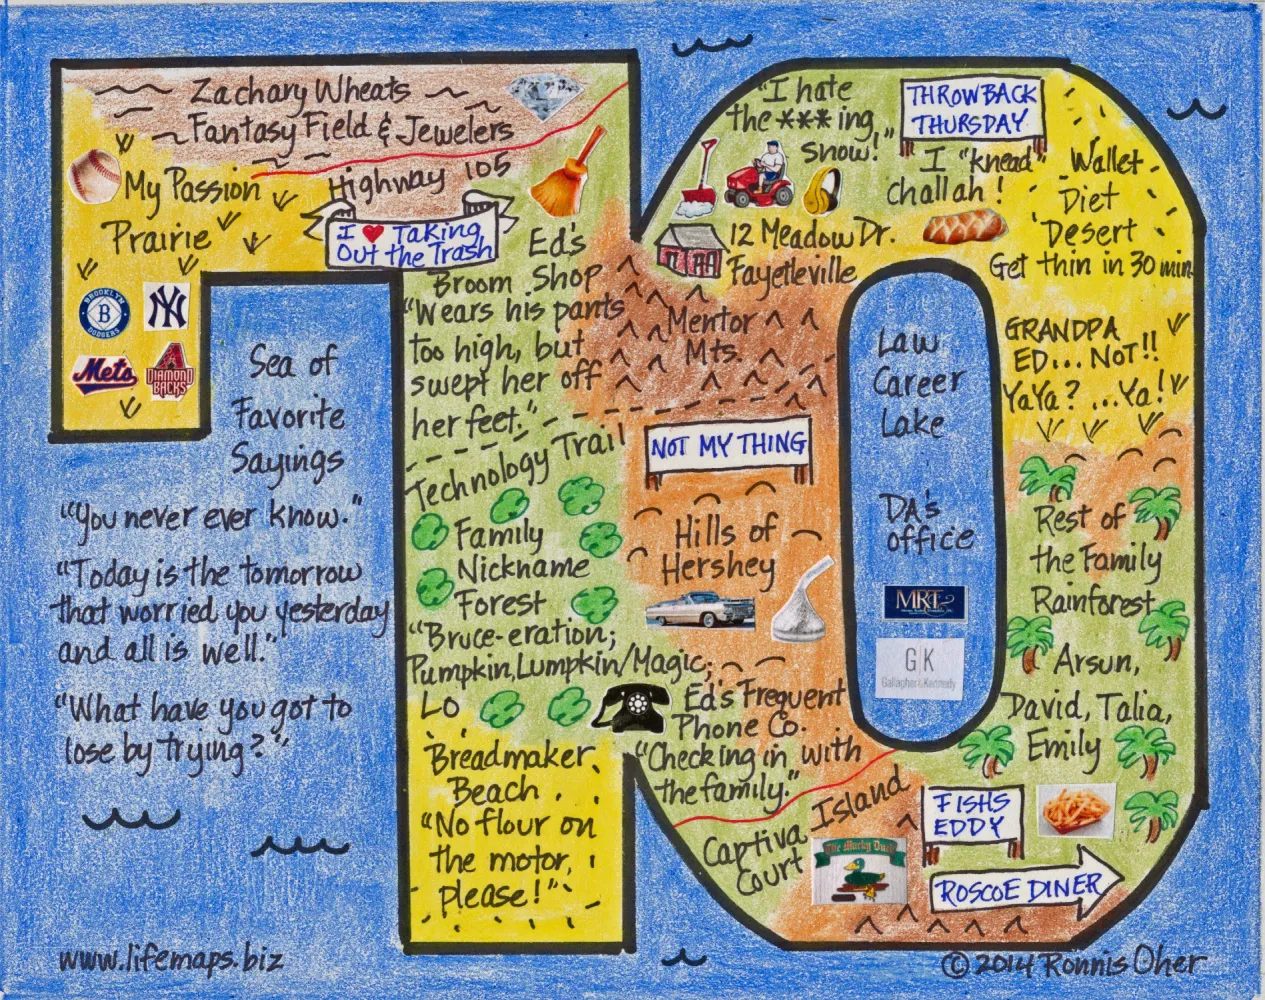 Zachary Wheats
Fantasy Field & Jewelers
Highway 105
My Passion
Prairie
I ❤ Taking
Out the Trash
BROOKLYN
B
DODGERS
NY
Mets
DIAMOND
BACKS
Ed's
Broom Shop
"Wears his pants
too high, but
swept her off
her feet."
Technology Trail
Family
Nickname
Forest
"Bruce-eration;
Pumpkin, Lumpkin/Magic;
Lo
Breadmaker
Beach
"No flour on
the motor,
please!"
Sea of
Favorite
Sayings
"You never ever know."
"Today is the tomorrow
that worried you yesterday
and all is well."
"What have you got to
lose by trying?"
"I hate
the ***ing
snow!"
THROWBACK
THURSDAY
I "knead"
challah!
Wallet
Diet
Desert
Get thin in 30 min
12 Meadow Dr.
Fayetteville
Mentor
Mts.
NOT MY THING
Hills of
Hershey
Ed's Frequent
Phone Co.
"Checking in with
the family."
Law
Career
Lake
DA's
office
MRT
G|K
Gallagher & Kennedy
GRANDPA
ED... NOT!!
YaYa? ...Ya!
Rest of
the Family
Rainforest
Arsun,
David, Talia,
Emily
Captiva Island
Court
The Mucky Duck
FISHS
EDDY
ROSCOE DINER
www.lifemaps.biz
© 2014 Ronnis Oher